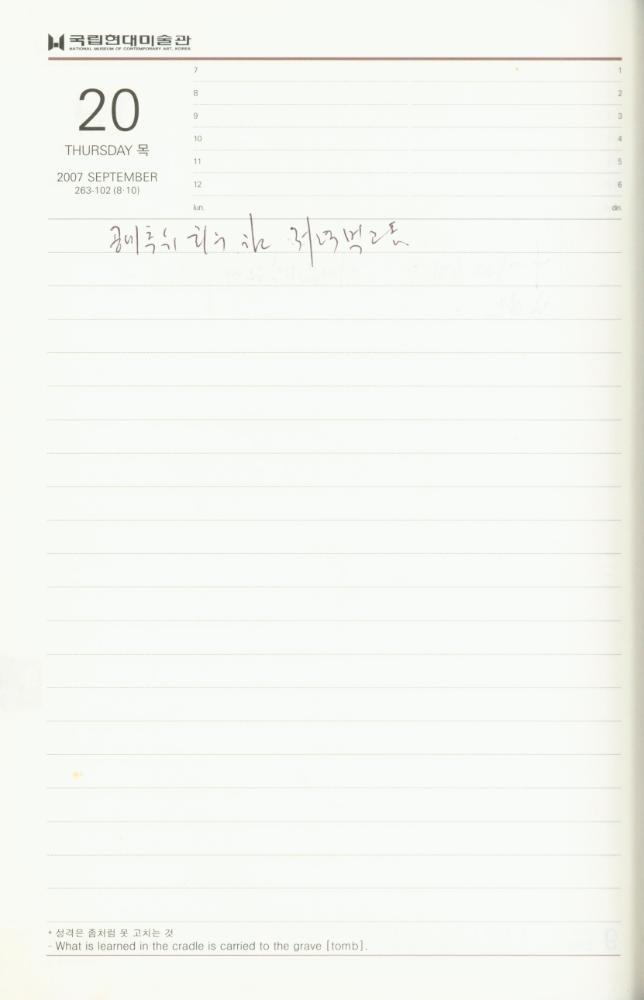 국립현대미술관
NATIONAL MUSEUM OF CONTEMPORARY ART, KOREA
20
THURSDAY 목
2007 SEPTEMBER
263-102 (8·10)
7 1
8 2
9 3
10 4
11 5
12 6
lun. din.
저녁먹고
* 성격은 좀처럼 못 고치는 것
- What is learned in the cradle is carried to the grave [tomb].